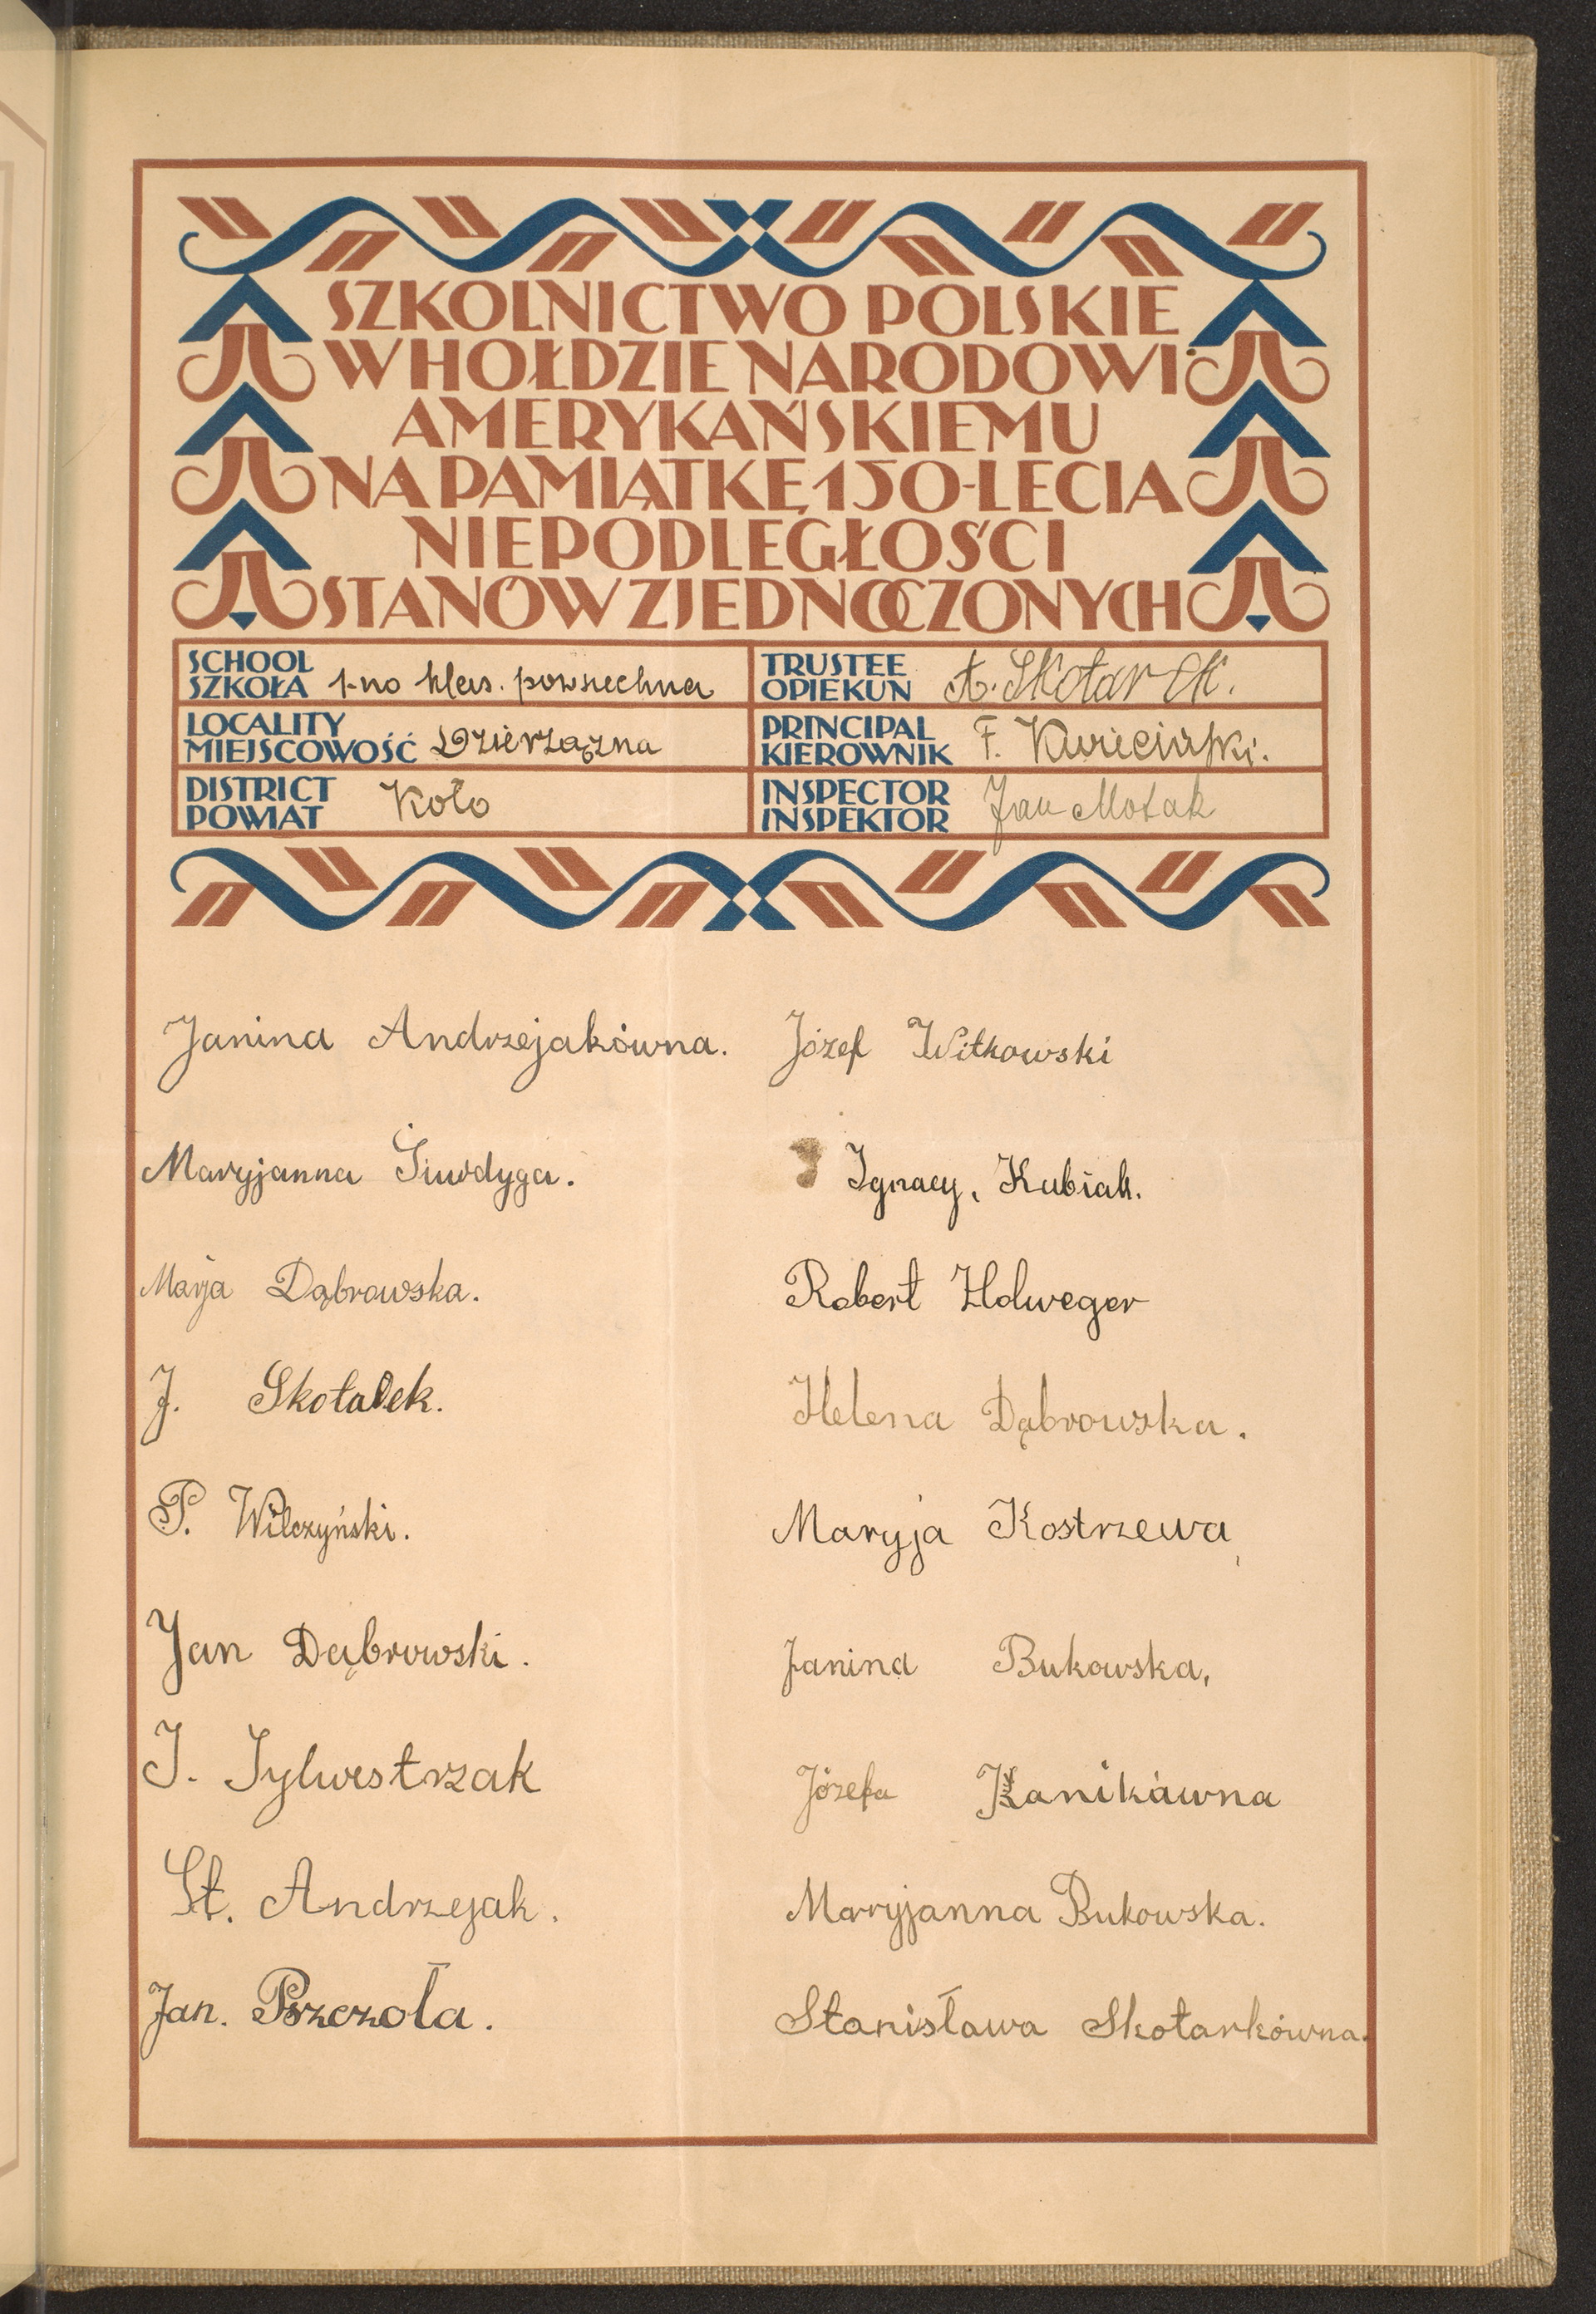 SZKOLNICTWO POLSKIE
W HOŁDZIE NARODOWI
AMERYKAŃSKIEMU
NA PAMIĄTKĘ 150-LECIA
NIEPODLEGŁOŚCI
STANÓW ZJEDNOCZONYCH
SCHOOL
SZKOŁA 1-no klas. powszechna
TRUSTEE
OPIEKUN A. Skotarek.
LOCALITY
MIEJSCOWOŚĆ Dzierzązna
PRINCIPAL
KIEROWNIK F. Kwieciński.
DISTRICT
POWIAT Koło
INSPECTOR
INSPEKTOR Jan
Janina Andrzejakówna.
Maryjanna
Marja Dąbrowska.
J.
P. Wilczyński.
Jan Dąbrowski.
J. Sylwestrzak
St. Andrzejak.
Jan. Pszczoła.
Józef Witkowski
Ignacy, Kubiak.
Robert Holweger
Helena Dąbrowska.
Maryja Kostrzewa,
Janina Bukowska,
Józefa Kanikówna
Maryjanna Bukowska.
Stanisława Skotarkówna.